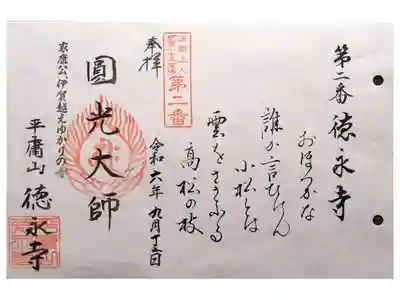 第二番 徳永寺
おぼつかな
誰が言ひけん
小松とは
雲をささふる
高松の枝
法然上人
第二番
令和六年九月十三日
奉拝
圓光大師
家康公伊賀越えゆかりの寺
平庸山 徳永寺